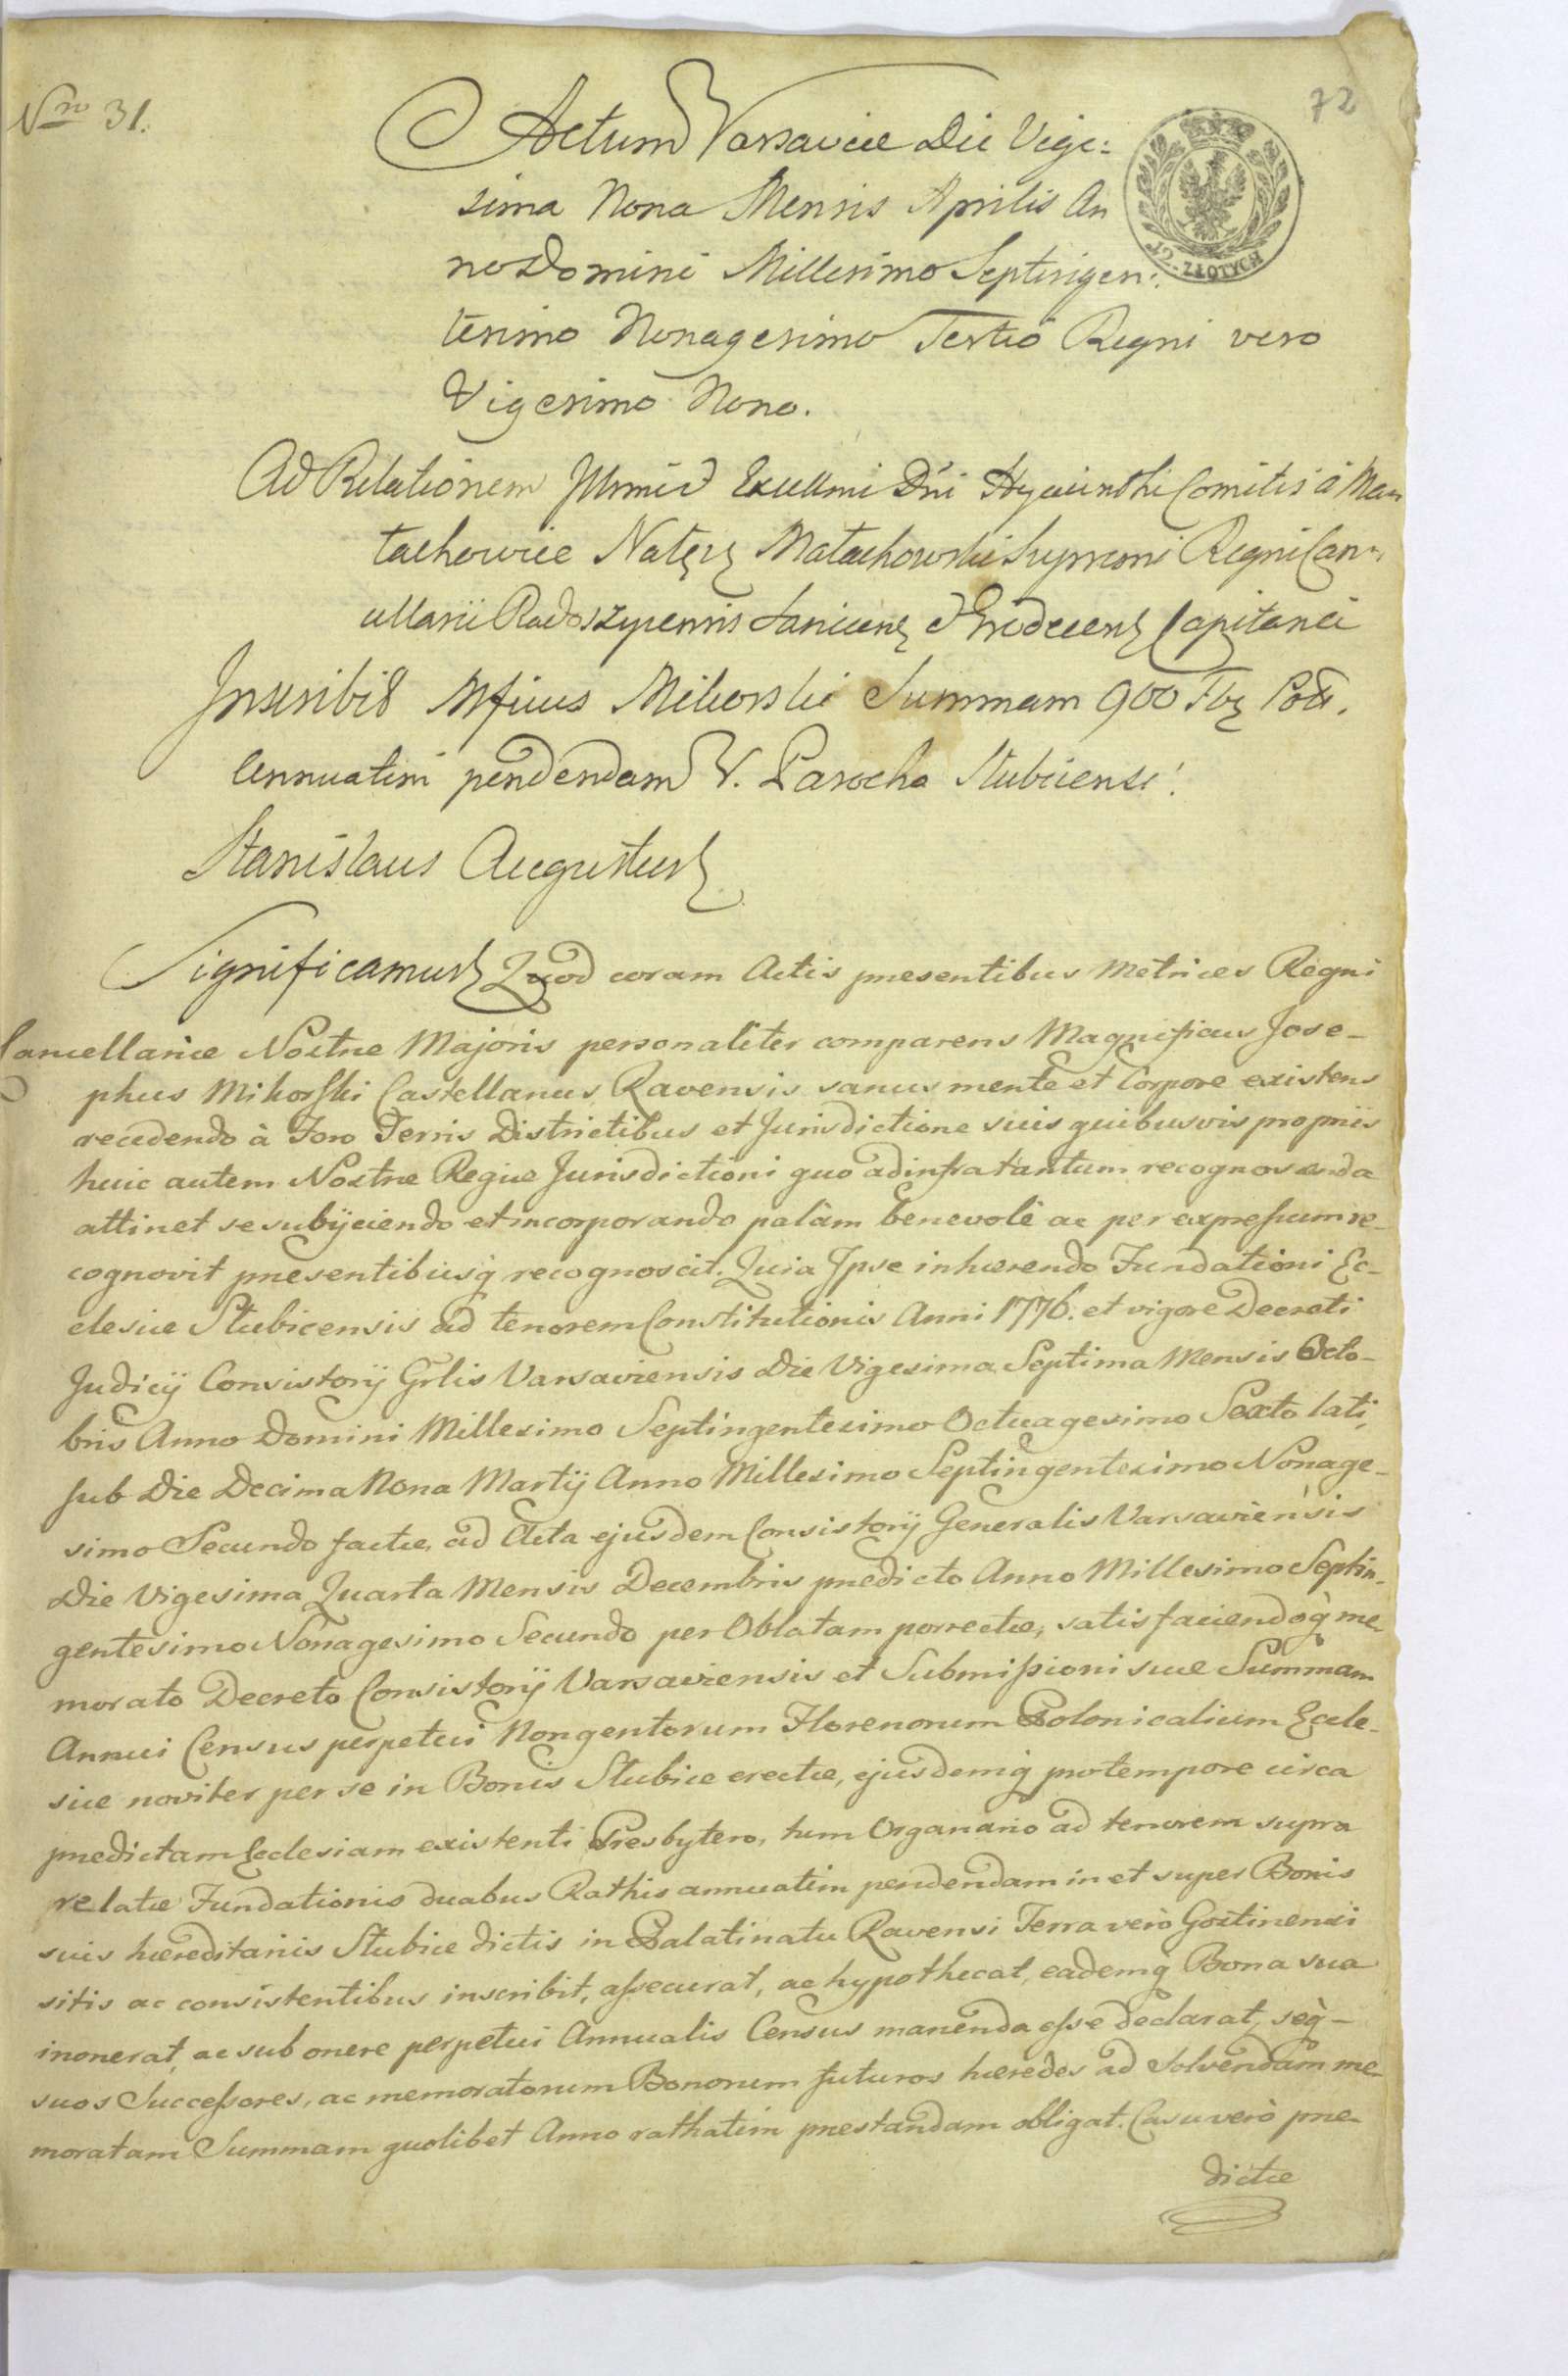 Nro 31.
72
Actum Varsaviæ Die Vige:
sima Nona Mensis Aprilis An
no Domini Millesimo Septingen:
tesimo Nonagesimo Tertio Regni vero
Vigesimo Nono.
12. ZŁOTYCH
Ad Relationem Illmi et Excellmi Dni Hyacinthi Comitis à Ma
łachowice Nałęcz Małachowski Supremi Regni Can:
cellarii Radoszycensis Sanicens et Grodecens Capitanei
Inscribit Mficus Mikorski Summam 900 Flor Pol.
Annuatim pendendam V. Parocho Slubicensi.
Stanislaus Augustus
Significamus Quod coram Actis præsentibus Metrices Regni
Cancellariæ Nostræ Majoris personaliter comparens Magnificus Jose-
phus Mikorski Castellanus Ravensis sanus mente et Corpore existens
recedendo à Foro Terris Districtibus et Jurisdictione suis quibusvis propriis
huic autem Nostræ Regiæ Jurisdictioni quo ad infra tantum recognoscenda
attinet se subijciendo et incorporando palàm benevolè ac per expressum re-
cognovit præsentibusq recognoscit. Quia Ipse inhærendo Fundationi Ec-
clesiæ Slubicensis ad tenorem Constitutionis Anni 1776. et vigore Decreti
Judicij Consistorij Grlis Varsaviensis Die Vigesima Septima Mensis Octo-
bris Anno Domini Millesimo Septingentesimo Octuagesimo Sexto lati,
sub Die Decima Nona Martij Anno Millesimo Septingentesimo Nonage-
simo Secundo factæ, ad Acta ejusdem Consistorij Generalis Varsaviensis
Die Vigesima Quarta Mensis Decembris prædicto Anno Millesimo Septin-
gentesimo Nonagesimo Secundo per Oblatam porrectæ, satisfaciendoq me-
morato Decreto Consistorij Varsaviensis et Submissioni suæ Summam
Annui Census perpetui Nongentorum Florenorum Polonicalium Eccle-
siæ noviter per se in Bonis Slubice erectæ, ejusdemq protempore circa
prædictam Ecclesiam existenti Presbytero, tum Organario ad tenorem supra
relatæ Fundationis duabus Rathis annuatim pendendam in et super Bonis
suis hæreditariis Slubice dictis in Palatinatu Ravensi Terra verò Gostinensi
sitis ac consistentibus inscribit, assecurat, ac hypothecat, eademq Bona sua
inonerat, ac sub onere perpetui Annualis Census manenda esse declarat, seq-
suos Successores, ac memoratorum Bonorum futuros hæredes ad Solvendam me-
moratam Summam quolibet Anno rathatim præstandam obligat. Casu verò præ-
dictæ